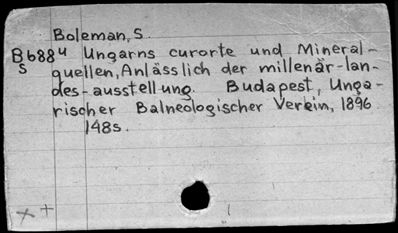 Boleman, S.
B688u Ungarns curorte und Mineral-
S quellen, Anlässlich der millenär-lan-
des-ausstellung. Budapest, Unga-
rischer Balneologischer Verein, 1896.
148s.